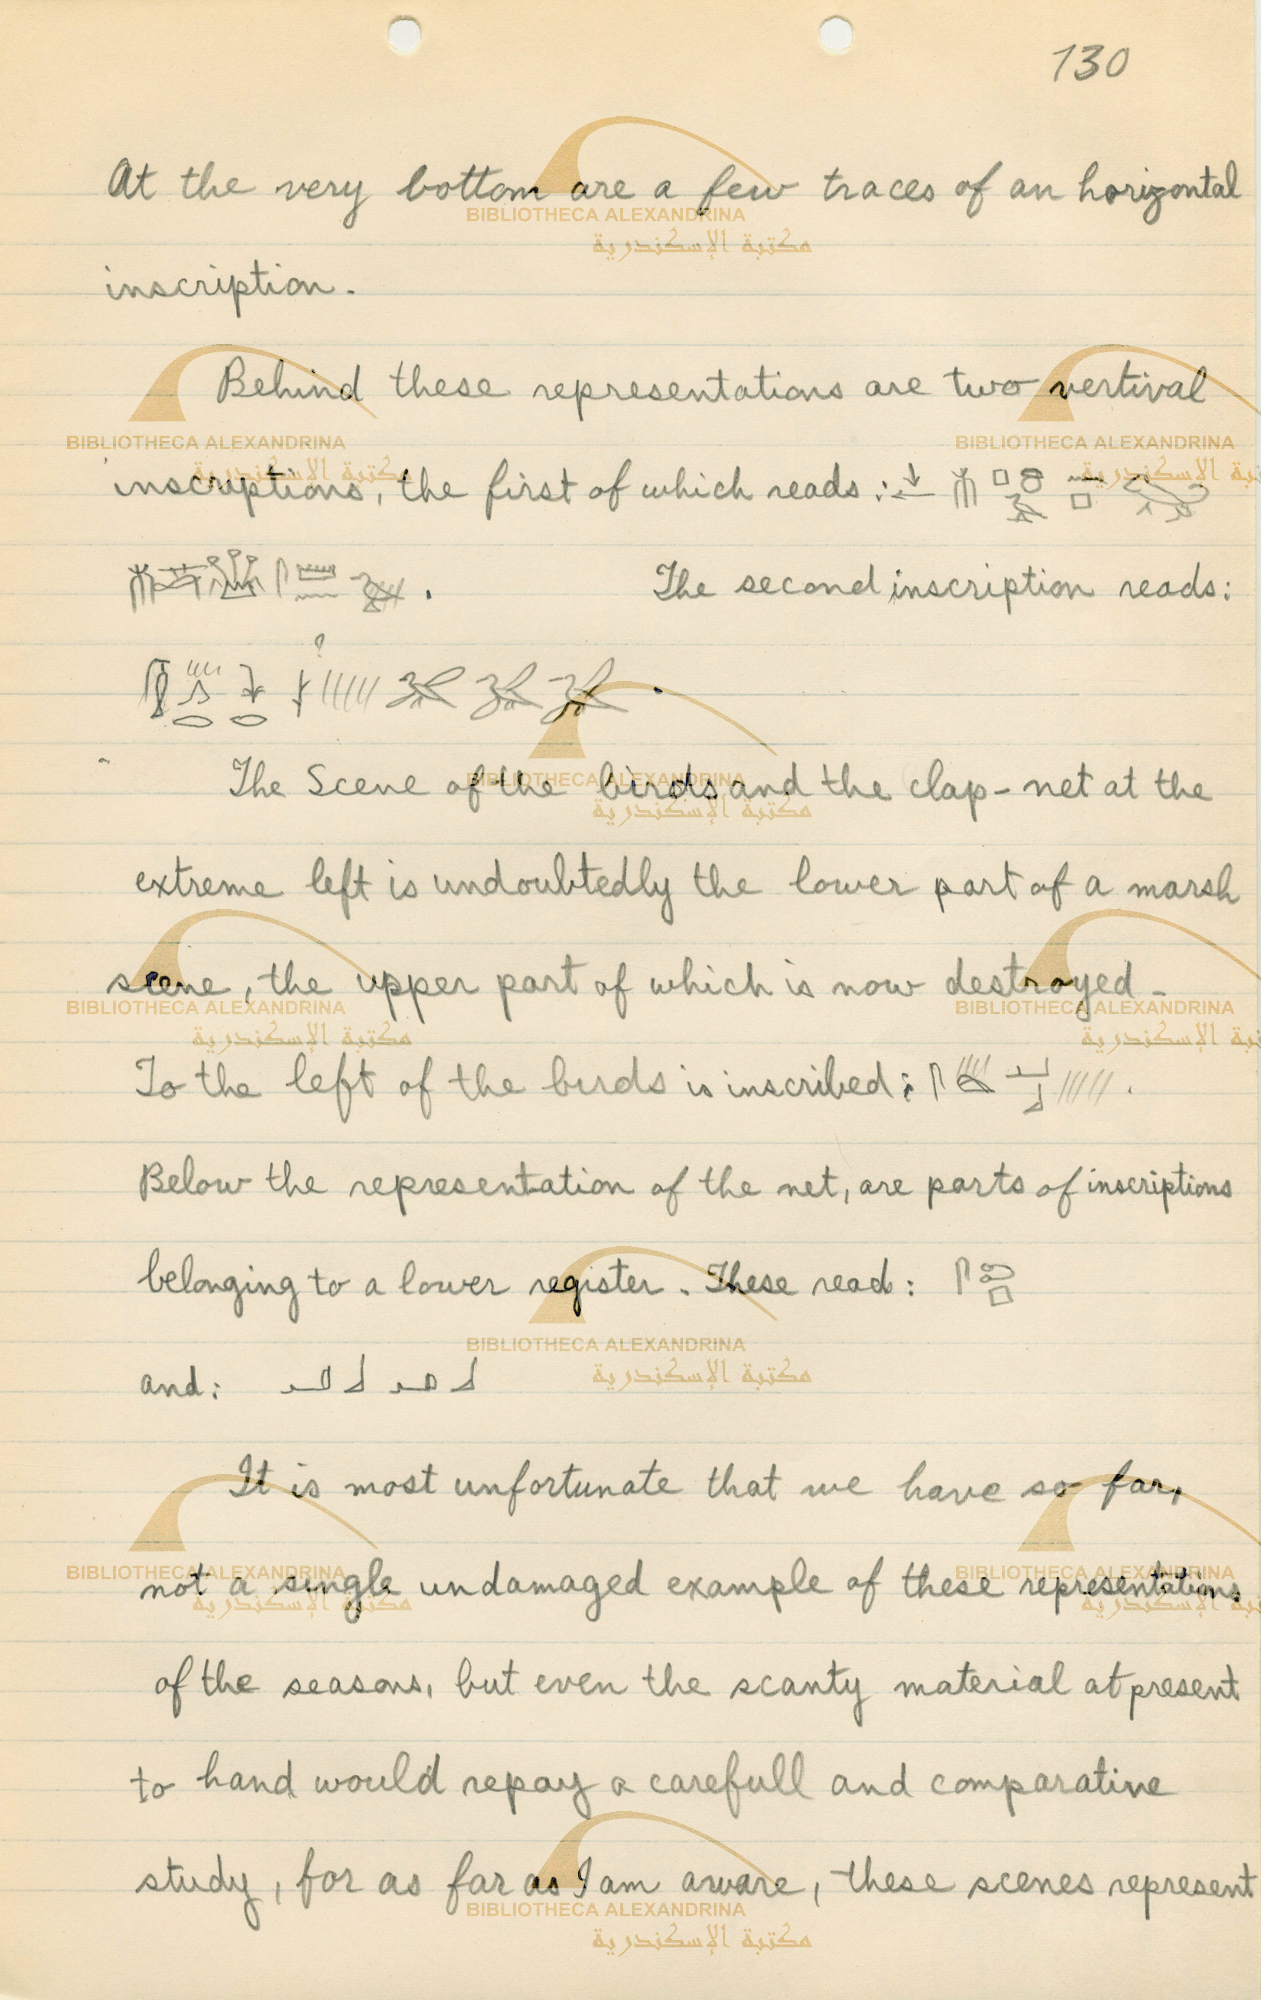 130
At the very bottom are a few traces of an horizontal
inscription.
Behind these representations are two vertival
inscriptions, the first of which reads :
. The second inscription reads:
?
The Scene of the birds and the clap-net at the
extreme left is undoubtedly the lower part of a marsh
scene, the upper part of which is now destroyed -
To the left of the birds is inscribed : .
Below the representation of the net, are parts of inscriptions
belonging to a lower register. These read :
and :
It is most unfortunate that we have so far,
not a single undamaged example of these representations
of the seasons, but even the scanty material at present
to hand would repay a carefull and comparative
study, for as far as I am aware, these scenes represent
BIBLIOTHECA ALEXANDRINA
مكتبة الإسكندرية